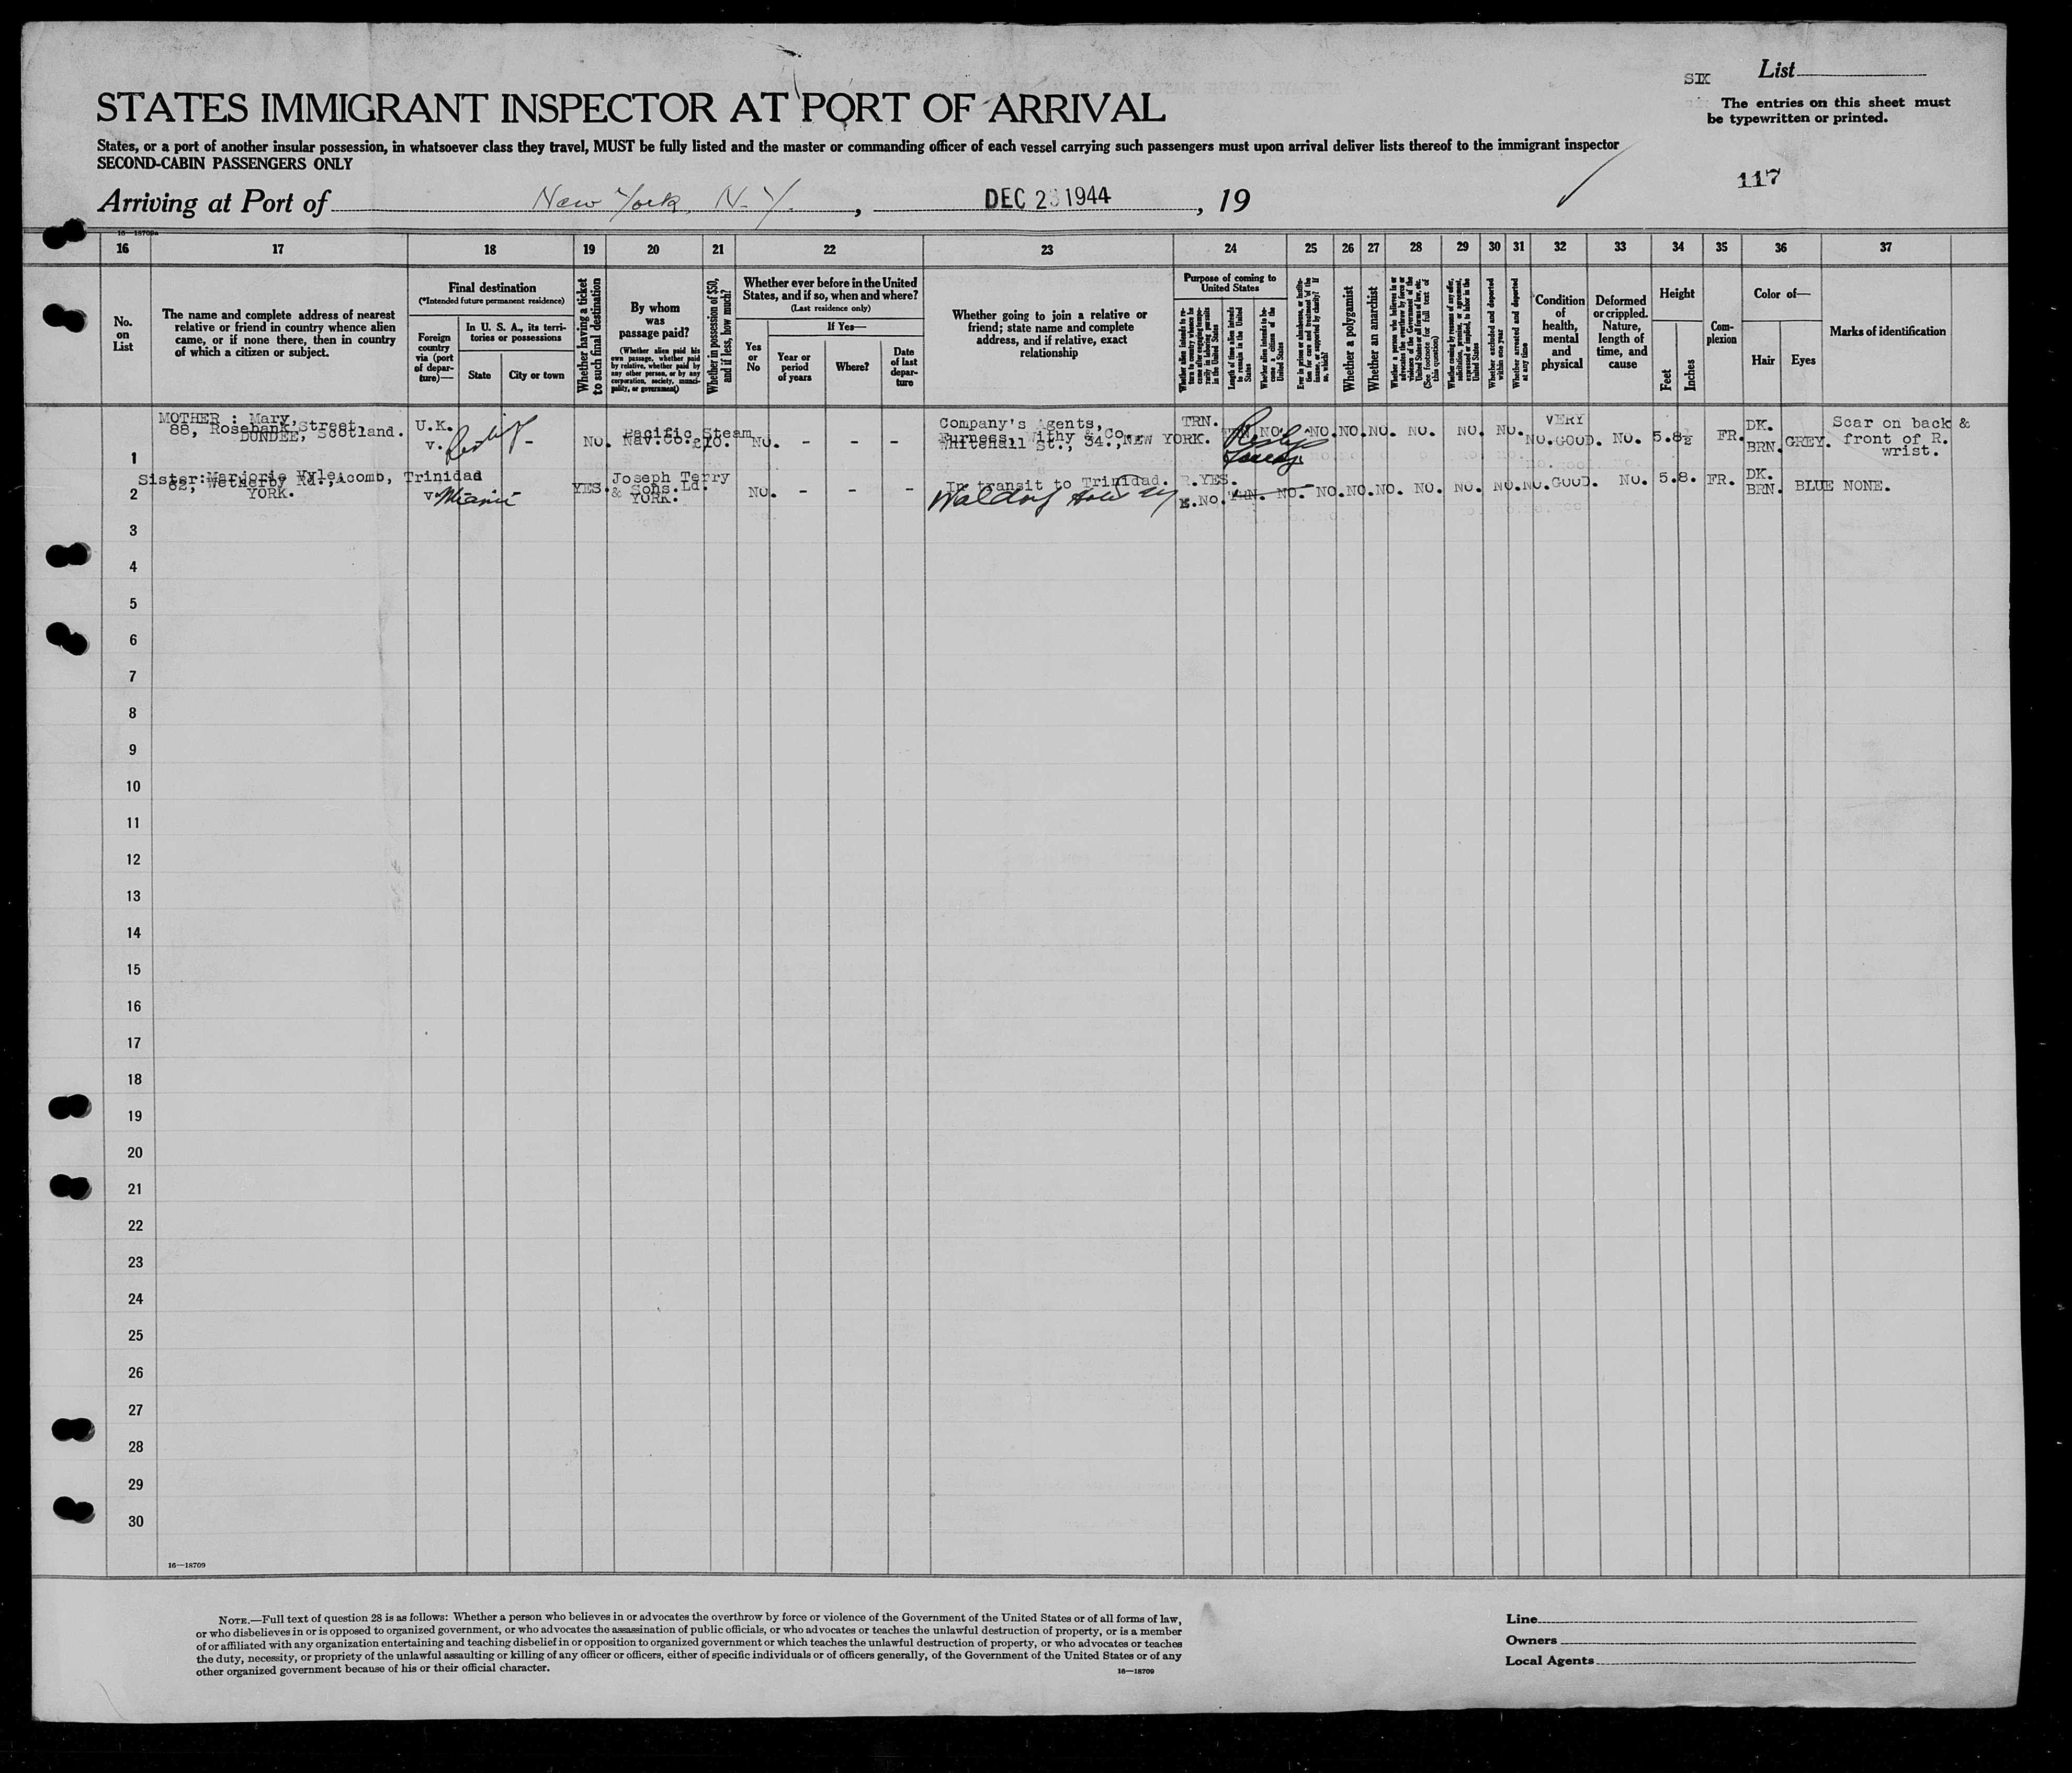 SIX List
STATES IMMIGRANT INSPECTOR AT PORT OF ARRIVAL
The entries on this sheet must
be typewritten or printed.
States, or a port of another insular possession, in whatsoever class they travel, MUST be fully listed and the master or commanding officer of each vessel carrying such passengers must upon arrival deliver lists thereof to the immigrant inspector
SECOND-CABIN PASSENGERS ONLY
117
Arriving at Port of New York, N.Y., DEC 23 1944, 19
16—18709a
16 17 18 19 20 21 22 23 24 25 26 27 28 29 30 31 32 33 34 35 36 37
No.
on
List
The name and complete address of nearest
relative or friend in country whence alien
came, or if none there, then in country
of which a citizen or subject.
Final destination
(*Intended future permanent residence)
Foreign
country
via (port
of depar-
ture)—
In U. S. A., its terri-
tories or possessions
State
City or town
Whether having a ticket
to such final destination
By whom
was
passage paid?
(Whether alien paid his
own passage, whether paid
by relative, whether paid by
any other person, or by any
corporation, society, munici-
pality, or government)
Whether in possession of $50,
and if less, how much?
Whether ever before in the United
States, and if so, when and where?
(Last residence only)
Yes
or
No
If Yes—
Year or
period
of years
Where?
Date
of last
depar-
ture
Whether going to join a relative or
friend; state name and complete
address, and if relative, exact
relationship
Purpose of coming to
United States
Whether alien intends to re-
turn to country whence he
came after engaging tempo-
rarily in laboring pursuits
in the United States
Length of time alien intends
to remain in the United
States
Whether alien intends to be-
come a citizen of the
United States
Ever in prison or almshouse, or institu-
tion for care and treatment of the
insane, or supported by charity? If
so, which?
Whether a polygamist
Whether an anarchist
Whether a person who believes in or
advocates the overthrow by force or
violence of the Government of the
United States or all forms of law, etc.
(See footnote for full text of
this question)
Whether coming by reason of any offer,
solicitation, promise, or agreement,
expressed or implied, to labor in the
United States
Whether excluded and deported
within one year
Whether arrested and deported
at any time
Condition
of
health,
mental
and
physical
Deformed
or crippled.
Nature,
length of
time, and
cause
Height
Feet
Inches
Com-
plexion
Color of—
Hair
Eyes
Marks of identification
1 MOTHER : Mary,
88, Rosebank Street
DUNDEE, Scotland.
U.K.
v. - NO. Pacific Steam
Nav.Co. NO. - - -
Company's Agents,
Furness, Withy & Co.
Whitehall St., 34., NEW YORK.
TRN. NO. NO. NO. NO. NO. NO. NO. NO. NO.
VERY
GOOD. NO. 5.8½ FR. DK.
BRN. GREY. Scar on back &
front of R.
wrist.
2 Sister: Marjorie
Wetherby Rd., Acomb,
YORK.
Trinidad
v. Miami YES. Joseph Terry
& Sons.Ld.
YORK. NO. - - -
In transit to Trinidad.
Waldorf
R.YES.
E.NO. TRN. NO. NO. NO. NO. NO. NO. NO. NO. GOOD. NO. 5.8. FR. DK.
BRN. BLUE NONE.
3
4
5
6
7
8
9
10
11
12
13
14
15
16
17
18
19
20
21
22
23
24
25
26
27
28
29
30
16—18709
NOTE.—Full text of question 28 is as follows: Whether a person who believes in or advocates the overthrow by force or violence of the Government of the United States or of all forms of law,
or who disbelieves in or is opposed to organized government, or who advocates the assassination of public officials, or who advocates or teaches the unlawful destruction of property, or is a member
of or affiliated with any organization entertaining and teaching disbelief in or opposition to organized government or which teaches the unlawful destruction of property, or who advocates or teaches
the duty, necessity, or propriety of the unlawful assaulting or killing of any officer or officers, either of specific individuals or of officers generally, of the Government of the United States or of any
other organized government because of his or their official character.
16—18709
Line
Owners
Local Agents